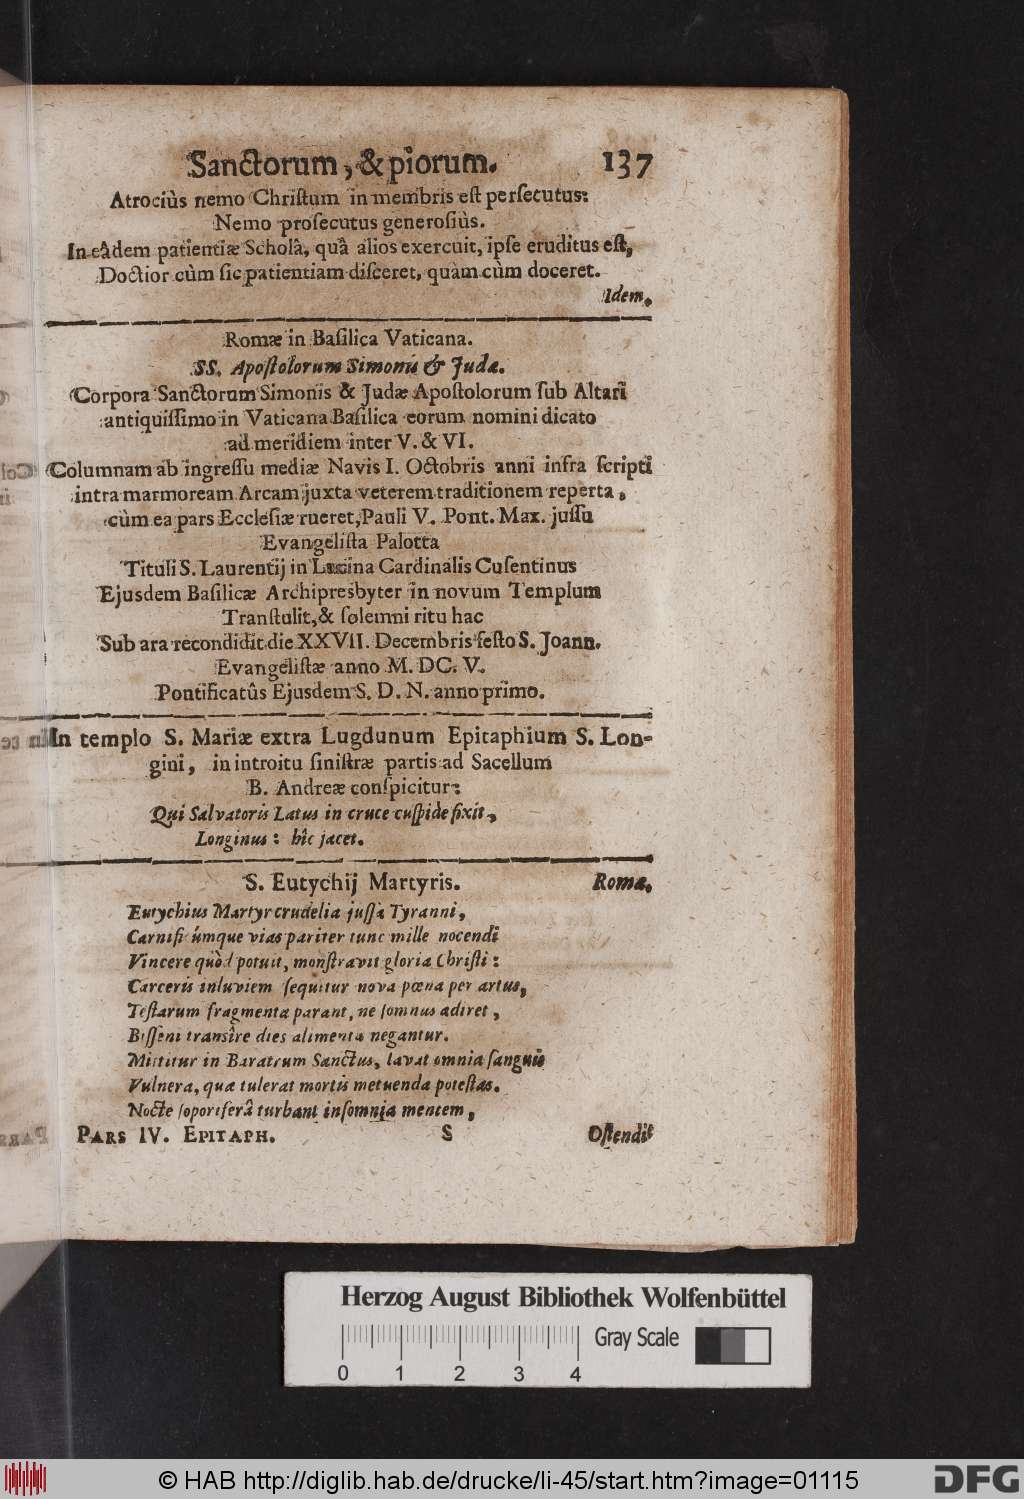 Sanctorum, & piorum. 137
Atrociùs nemo Christum in membris est persecutus:
Nemo prosecutus generosiùs.
In eâdem patientiæ Scholâ, quâ alios exercuit, ipse eruditus est,
Doctior cùm sic patientiam disceret, quàm cùm doceret.
Idem.
Romæ in Basilica Vaticana.
SS. Apostolorum Simonis & Judæ.
Corpora Sanctorum Simonis & Judæ Apostolorum sub Altari
antiquissimo in Vaticana Basilica eorum nomini dicato
ad meridiem inter V. & VI.
Columnam ab ingressu mediæ Navis I. Octobris anni infra scripti
intra marmoream Arcam juxta veterem traditionem reperta,
cùm ea pars Ecclesiæ rueret, Pauli V. Pont. Max. jussu
Evangelista Palotta
Tituli S. Laurentij in Lucina Cardinalis Cusentinus
Ejusdem Basilicæ Archipresbyter in novum Templum
Transtulit, & solemni ritu hac
Sub ara recondidit die XXVII. Decembris festo S. Joann.
Evangelistæ anno M. DC. V.
Pontificatûs Ejusdem S. D. N. anno primo.
In templo S. Mariæ extra Lugdunum Epitaphium S. Lon-
gini, in introitu sinistræ partis ad Sacellum
B. Andreæ conspicitur:
Qui Salvatoris Latus in cruce cuspide fixit,
Longinus: hîc jacet.
S. Eutychij Martyris. Romæ.
Eutychius Martyr crudelia jussa Tyranni,
Carnificúmque vias pariter tunc mille nocendi
Vincere quòd potuit, monstravit gloria Christi:
Carceris inluviem sequitur nova pœna per artus,
Testarum fragmenta parant, ne somnus adiret,
Bisseni transîre dies alimenta negantur.
Mittitur in Baratrum Sanctus, lavat omnia sanguis
Vulnera, quæ tulerat mortis metuenda potestas.
Nocte soporiferâ turbant insomnia mentem,
PARS IV. EPITAPH. S Ostendit
Herzog August Bibliothek Wolfenbüttel
Gray Scale
0 1 2 3 4
© HAB http://diglib.hab.de/drucke/li-45/start.htm?image=01115
DFG